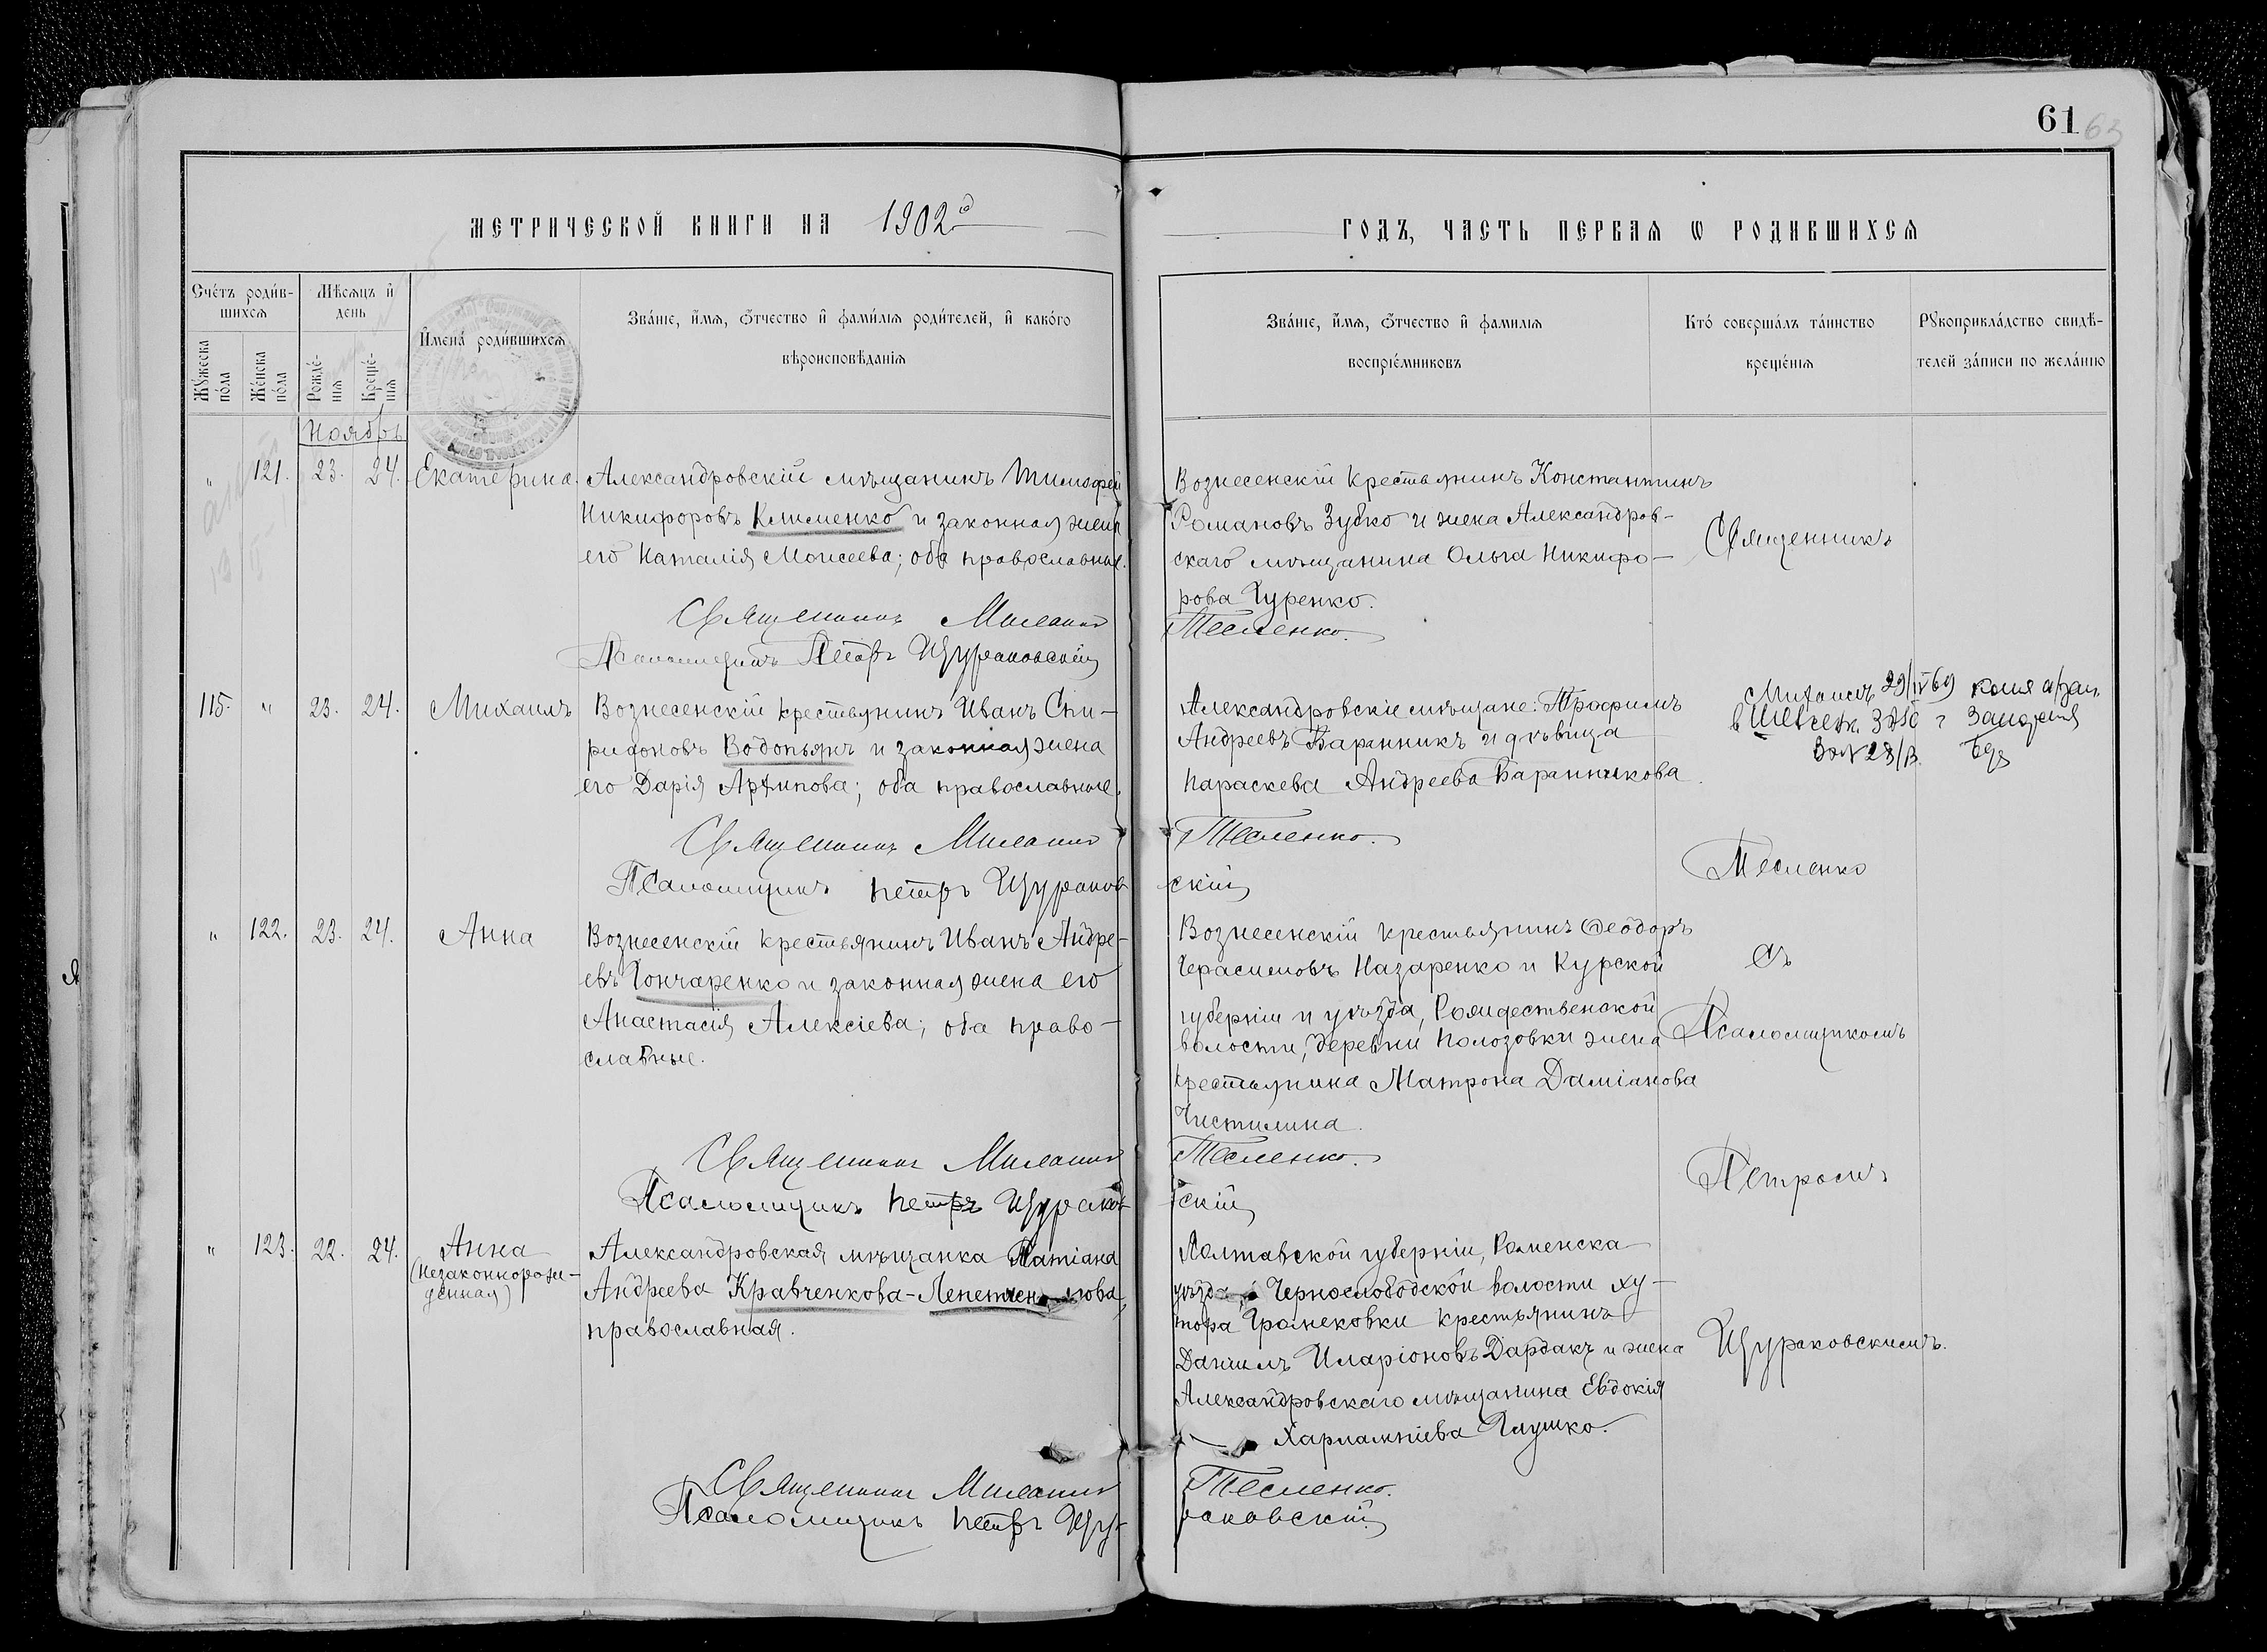 61
63
МЕТРИЧЕСКОЙ КНИГИ НА 1902й
ГОДЪ, ЧАСТЬ ПЕРВАЯ Ѡ РОДИВШИХСЯ
Счетъ родив-
шихся
Мѣсяцъ и
день
Мужеска
пола
Женска
пола
Рожде-
нія
Креще-
нія
Имена родившихся
Званіе, имя, отчество и фамилія родителей, и какого
вѣроисповѣданія
Званіе, имя, отчество и фамилія
воспріемниковъ
Кто совершалъ таинство
крещенія
Рукоприкладство свидѣ-
телей записи по желанію
Ноябрь
" 121. 23. 24. Екатерина.
Александровскій мѣщанинъ Тимофей
Никифоровъ Клименко и законная жена
его Наталія Моисеева; оба православные.
Вознесенскій крестьянинъ Константинъ
Романовъ Зубко и жена Александров-
скаго мѣщанина Ольга Никифо-
рова Гуренко.
Священникъ
Священникъ Тесленко.
Псаломщикъ Петръ Щураковскій
115. " 23. 24. Михаилъ
Вознесенскій крестьянинъ Иванъ Спи-
ридоновъ Водопьянъ и законная жена
его Дарія Архипова; оба православные.
Александровскіе мѣщане: Трофимъ
Андреевъ Баранникъ и дѣвица
Параскева Андреева Баранникова.
29/IV 69 копия
в Шевченк.
Священникъ Тесленко.
Псаломщикъ Петръ Щураковскій
Тесленко
" 122. 23. 24. Анна
Вознесенскій крестьянинъ Иванъ Андре-
евъ Гончаренко и законная жена его
Анастасія Алексіева; оба право-
славные.
Вознесенскій крестьянинъ Ѳеодоръ
Герасимовъ Назаренко и Курской
губерніи и уѣзда, Рождественской
волости, деревни Полозовки жена
крестьянина Матрона Даміанова
Чистилина.
Съ
Псаломщикомъ
Священникъ Тесленко.
Псаломщикъ Петръ Щураковскій
Петромъ
" 123. 22. 24. Анна
(незаконнорож-
денная)
Александровская мѣщанка Татіана
Андреева Кравченкова-
православная.
Полтавской губерніи, Роменска
уѣзда, Чернослободской волости ху-
тора Громековки крестьянинъ
Даніилъ Иларіоновъ Дардакъ и жена
Александровскаго мѣщанина Евдокія
Харлампіева Глушко.
Щураковскимъ.
Священникъ Тесленко.
Псаломщикъ Петръ Щураковскій